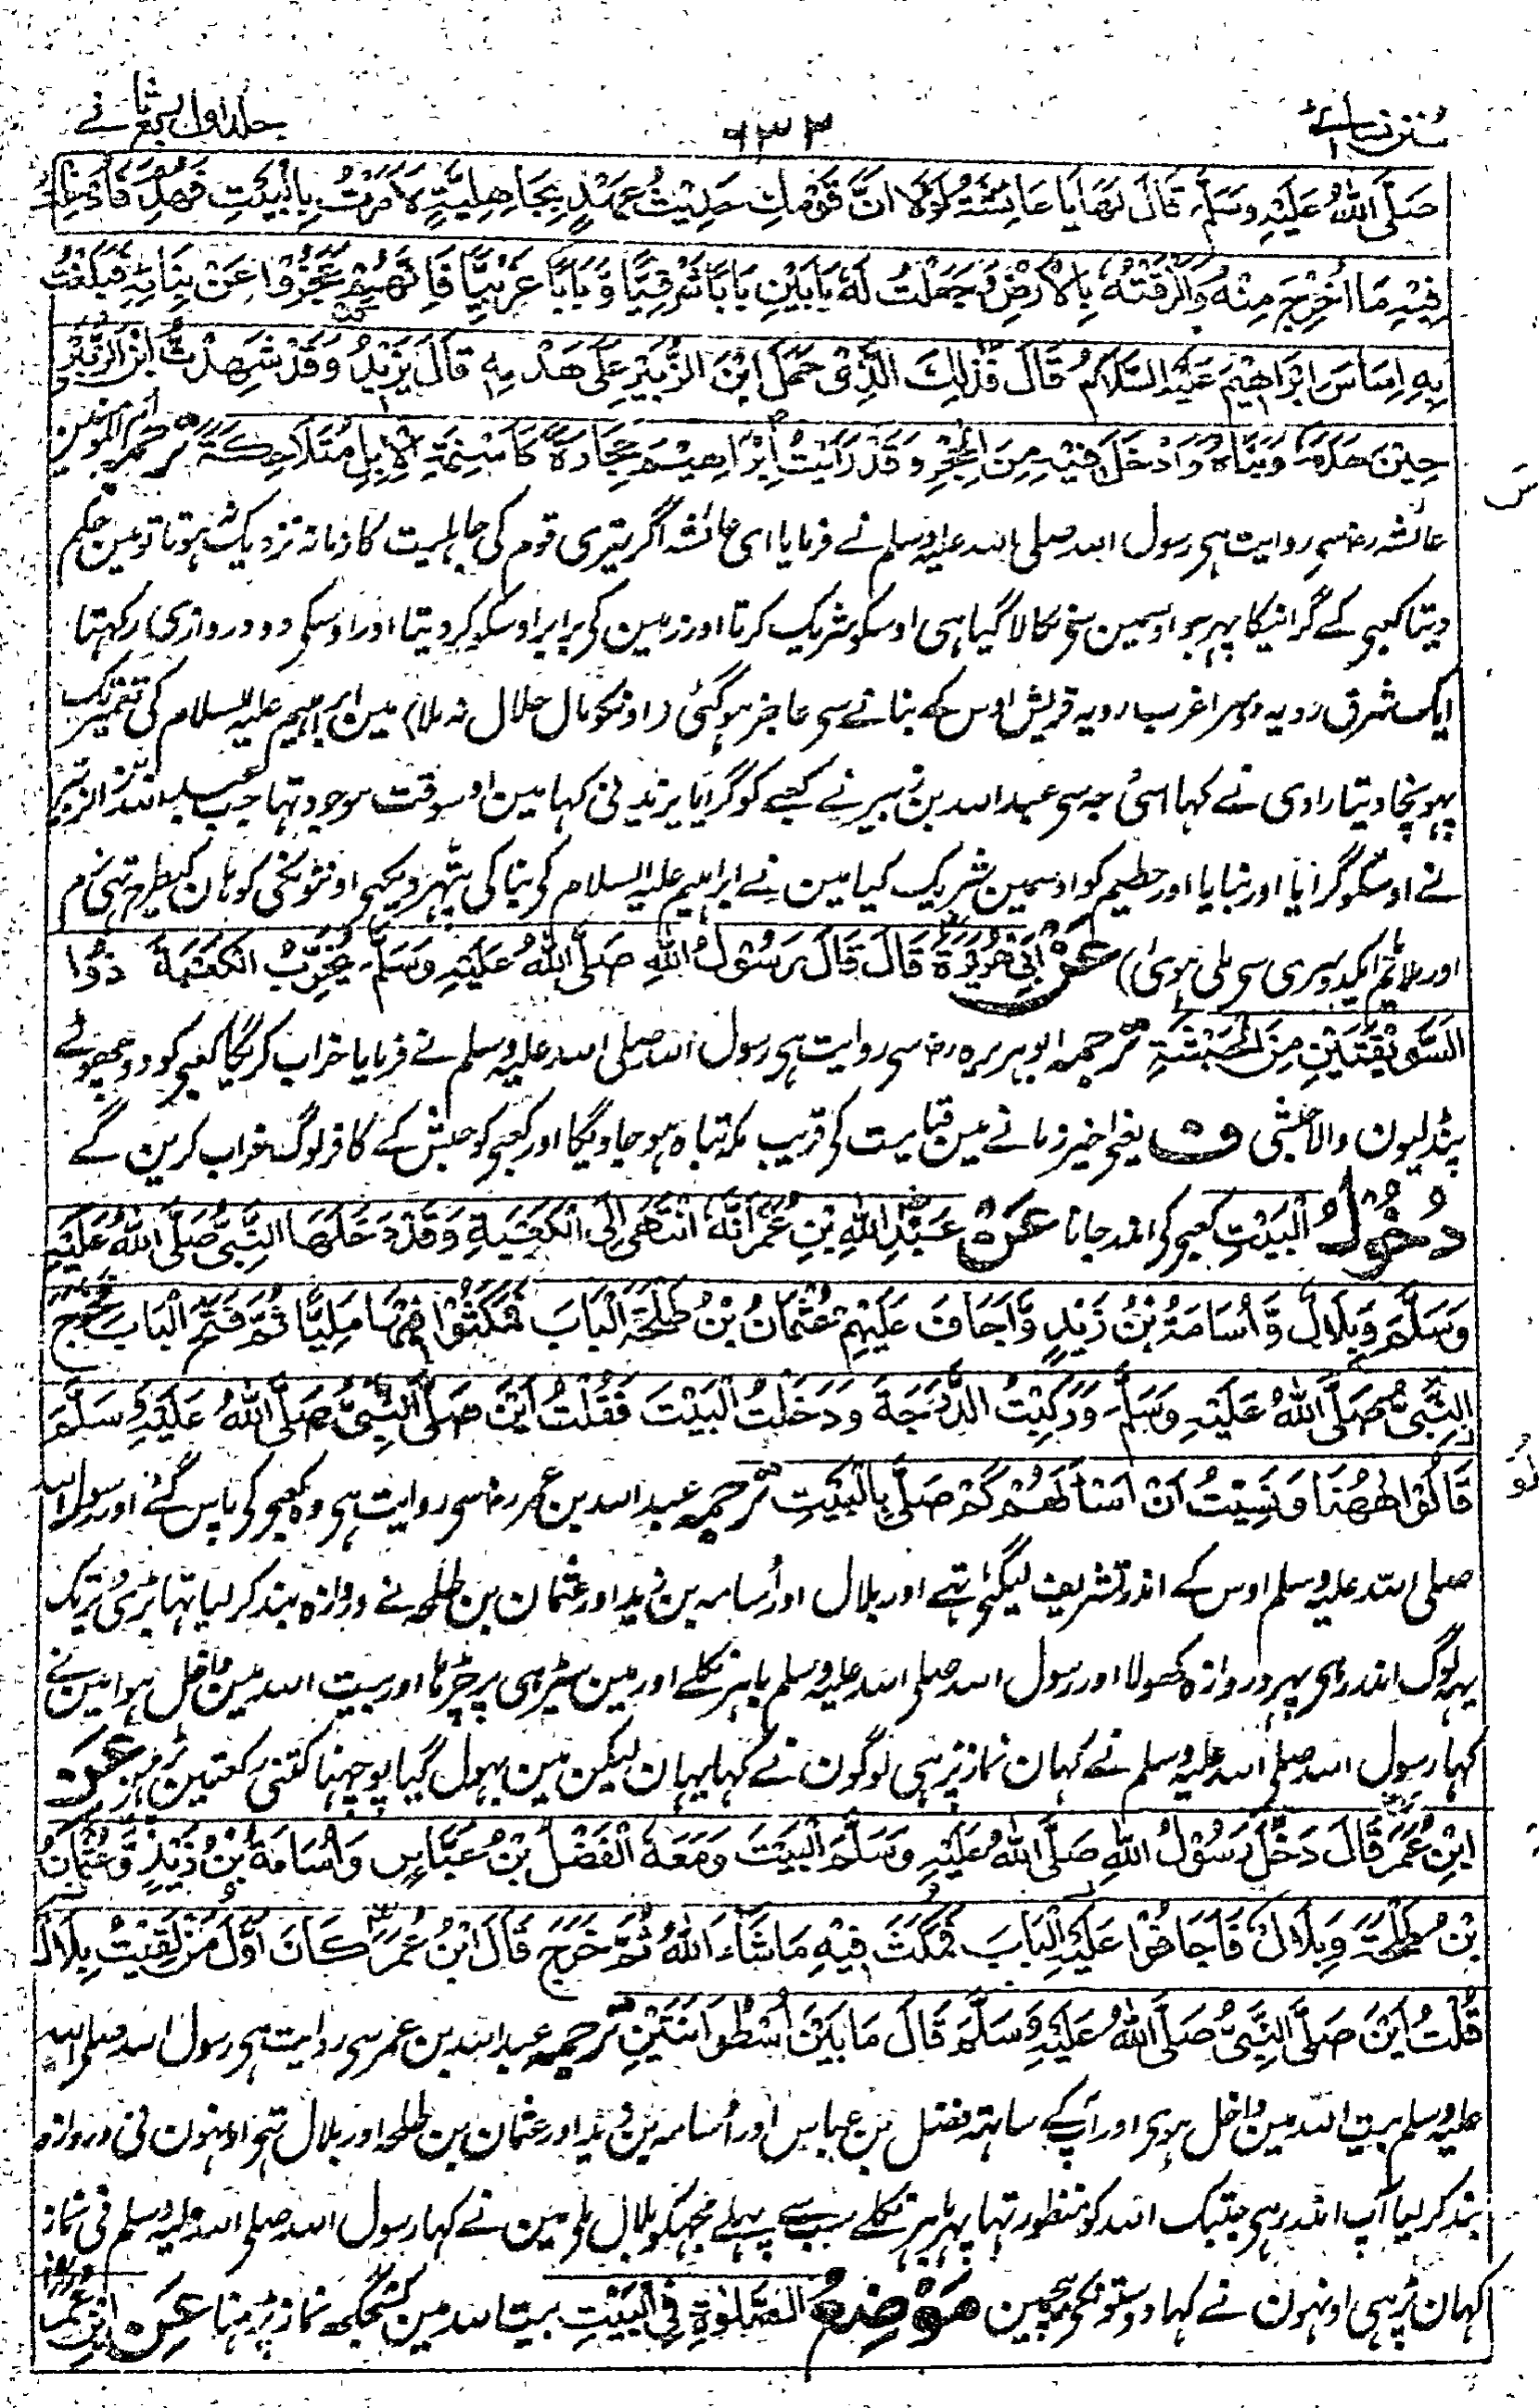 سنن نسائے ۶۳۲ جلد اول ربع ثانے
صَلَّی اللهُ عَلَیْهِ وَسَلَّمَ قَالَ لَهَا یَا عَائِشَةُ لَوْلَا اَنَّ قَوْمَكِ حَدِیْثُ عَهْدٍ بِجَاهِلِیَّةٍ لَاَمَرْتُ بِالْبَیْتِ فَهُدِمَ فَاَدْخَلْتُ
فِیْهِ مَا اُخْرِجَ مِنْهُ وَاَلْزَقْتُهُ بِالْاَرْضِ وَجَعَلْتُ لَهُ بَابَیْنِ بَابًا شَرْقِیًّا وَّبَابًا غَرْبِیًّا فَاِنَّهُمْ قَدْ عَجَزُوْا عَنْ بِنَائِهِ فَبَلَغْتُ
بِهِ اِسَاسَ اِبْرَاهِیْمَ عَلَیْهِ السَّلَامُ قَالَ فَذٰلِكَ الَّذِیْ حَمَلَ ابْنَ الزُّبَیْرِ عَلٰی هَدْمِهِ قَالَ یَزِیْدُ وَقَدْ شَهِدْتُ ابْنَ الزُّبَیْرِ
حِیْنَ هَدَمَهُ وَبَنَاهُ وَاَدْخَلَ فِیْهِ مِنَ الْحِجْرِ وَقَدْ رَاَیْتُ اِبْرَاهِیْمَ حِجَارَةً كَاَسْنِمَةِ الْاِبِلِ مُتَلَاحِكَةً ترجمہ ام المومنین
عائشہ رضہ سے روایت ہی رسول اللہ صلی اللہ علیہ وسلم نے فرمایا ای عائشہ اگر تیری قوم کی جاہلیت کا زمانہ نزدیک نہوتا تو مین حکم
دیتا کعبے کے گرانیکا پہر جو اوسمین سے نکالا گیا ہی اوسکو شریک کرتا اور زمین کی برابر اوسکو کر دیتا اور اوسکی دو دروازی رکہتا
ایک شرق رویہ دوسرا غرب رویہ قریش اوس کے بنانے سے عاجز ہوگئی (اونکو مال حلال نہ ملا) مین ابراہیم علیہ السلام کی تعمیر تک
پہونچا دیتا راوی نے کہا اسی وجہ سے عبد اللہ بن زبیر نے کعبے کو گرایا یزید نی کہا مین اوسوقت موجود تہا جب عبد اللہ بن الزبیر
نے اوسکو گرایا اور بنایا اور حطیم کو اوسمین شریک کیا مین نے ابراہیم علیہ السلام کی بنا کی پتہر دیکہی اونٹونکی کوہان کیطرح تہی نرم
اور ملائم ایک دوسری سے ملی ہوئی) عَنْ اَبِیْ هُرَیْرَةَ قَالَ قَالَ رَسُوْلُ اللهِ صَلَّی اللهُ عَلَیْهِ وَسَلَّمَ یُخَرِّبُ الْكَعْبَةَ ذُوا
السُّوَیْقَتَیْنِ مِنَ الْحَبَشَةِ ترجمہ ابو ہریرہ رضہ سے روایت ہی رسول اللہ صلی اللہ علیہ وسلم نے فرمایا خراب کریگا کعبے کو دو چھوٹے
پنڈلیون والا حبشی ف یعنے اخیر زمانے مین قیامت کی قریب مکہ تباہ ہو جاویگا اور کعبے کو حبش کے کافر لوگ خراب کرین گے
دُخُوْلُ الْبَیْتِ کعبے کے اندر جانا عَنْ عَبْدِ اللهِ بْنِ عُمَرَ اَنَّهُ انْتَهٰی اِلَی الْكَعْبَةِ وَقَدْ دَخَلَهَا النَّبِیُّ صَلَّی اللهُ عَلَیْهِ
وَسَلَّمَ وَبِلَالٌ وَّاُسَامَةُ بْنُ زَیْدٍ وَّاَجَافَ عَلَیْهِمْ عُثْمَانُ بْنُ طَلْحَةَ الْبَابَ فَمَكَثُوْا فِیْهَا مَلِیًّا ثُمَّ فَتَحَ الْبَابَ فَخَرَجَ
النَّبِیُّ صَلَّی اللهُ عَلَیْهِ وَسَلَّمَ وَرَكِبْتُ الدَّرَجَةَ وَدَخَلْتُ الْبَیْتَ فَقُلْتُ اَیْنَ صَلَّی النَّبِیُّ صَلَّی اللهُ عَلَیْهِ وَسَلَّمَ
قَالُوْا هٰهُنَا وَنَسِیْتُ اَنْ اَسْاَلَهُمْ كَمْ صَلّٰی بِالْبَیْتِ ترجمہ عبد اللہ بن عمر رضہ سے روایت ہی وہ کعبے کی پاس گئے اور رسول اللہ
صلی اللہ علیہ وسلم اوس کے اندر تشریف لیگئے تہے اور بلال اور اُسامہ بن زید اور عثمان بن طلحہ نے دروازہ بند کر لیا تہا بڑی دیر تک
یہ لوگ اندر رہی پہر دروازہ کھولا اور رسول اللہ صلی اللہ علیہ وسلم باہر نکلے اور مین سیڑہی پر چڑہا اور بیت اللہ مین داخل ہوا مین نے
کہا رسول اللہ صلی اللہ علیہ وسلم نے کہان نماز پڑہی لوگون نے کہا یہان لیکن مین بہول گیا پوچہنا کتنی رکعتین پڑہین عَنِ
ابْنِ عُمَرَ قَالَ دَخَلَ رَسُوْلُ اللهِ صَلَّی اللهُ عَلَیْهِ وَسَلَّمَ الْبَیْتَ وَمَعَهُ الْفَضْلُ بْنُ عَبَّاسٍ وَاُسَامَةُ بْنُ زَیْدٍ وَّعُثْمَانُ
بْنُ طَلْحَةَ وَبِلَالٌ فَاَجَافُوْا عَلَیْهِ الْبَابَ فَمَكَثَ فِیْهِ مَا شَاءَ اللهُ ثُمَّ خَرَجَ قَالَ ابْنُ عُمَرَ كَانَ اَوَّلُ مَنْ لَقِیْتُ بِلَالًا
قُلْتُ اَیْنَ صَلَّی النَّبِیُّ صَلَّی اللهُ عَلَیْهِ وَسَلَّمَ قَالَ مَا بَیْنَ اُسْطُوَانَتَیْنِ ترجمہ عبد اللہ بن عمر سے روایت ہی رسول اللہ صلی اللہ
علیہ وسلم بیت اللہ مین داخل ہوی اور آپکے ساتہہ فضل بن عباس اور اُسامہ بن زید اور عثمان بن طلحہ اور بلال تہی اونہون نی دروازہ
بند کر لیا آپ اندر رہی جبتک اللہ کو منظور تہا پہر باہر نکلے سب سے پہلے مجہکو بلال ملی مین نے کہا رسول اللہ صلی اللہ علیہ وسلم نی نماز
کہان پڑہی اونہون نے کہا دو ستونکی بیچ مین مَوْضِعُ الصَّلٰوةِ فِی الْبَیْتِ بیت اللہ مین کس جگہ نماز پڑہنا عَنِ ابْنِ عُمَرَ